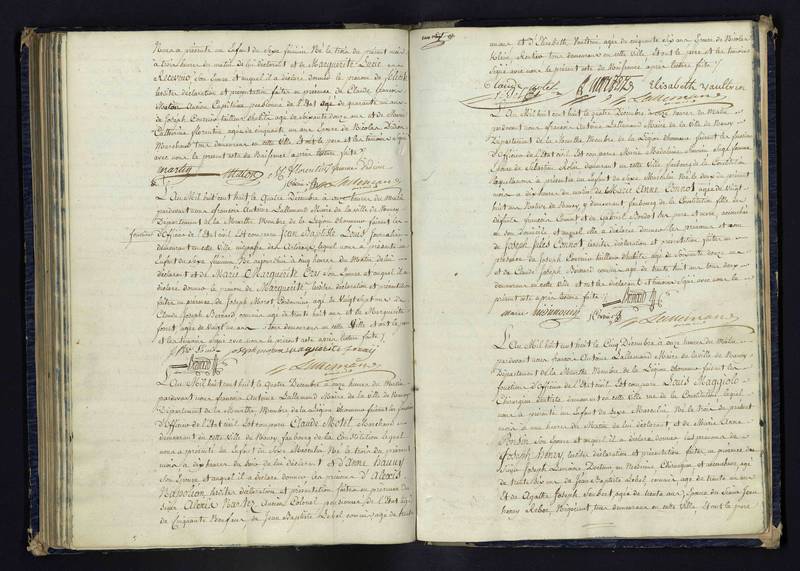 Nous a présenté un Enfant de Sexe féminin Né le trois du présent mois
à trois heures du matin de lui déclarant et de Marguerite Lucie
Receveur Son Epouse et auquel il a déclaré donner le prénom de
lesdites déclaration et présentation faites en présence de Claude
Ancien Capitaine, pensionné de l'Etat agé de quarante un ans
de Joseph agé de soixante douze ans et de Dame
Catherine florentin agée de cinquante un ans Epouse de Nicolas Didion
Marchand tous demeurans en cette Ville et ont le pere et les temoins signé
avec nous le présent acte de Naissance après lecture faite
L'An Mil huit cent huit le quatre Décembre à onze heures du Matin
pardevant nous françois Antoine Lallemand Maire de la ville de Nancy
Département de la Meurthe Membre de la Légion d'honneur faisant les
fonctions
d'Officier de l'Etat civil Est comparu Jean Baptiste Louis Journalier
demeurant en cette ville lequel nous a présenté un
Enfant du Sexe féminin Né aujourd'hui à cinq heures du Matin de lui
déclarant et de Marie Marguerite Son Epouse et auquel il a
déclaré donner le prénom de Marguerite lesdites déclaration et présentation
faites en présence de Joseph Morot Cordonnier agé de vingt sept ans de
Claude Joseph Bernard commis agé de trente huit ans et de Marguerite
agée de vingt un ans tous demeurans en cette Ville et ont le pere
et les temoins signé avec nous le présent acte après lecture faite
Lallemand
L'An Mil huit cent huit le quatre Décembre à onze heures du Matin
pardevant nous françois Antoine Lallemand Maire de la ville de Nancy
Département de la Meurthe Membre de la Légion d'honneur faisant les fonctions
d'Officier de l'Etat civil Est comparu Claude Motel
demeurant en cette Ville de Nancy faubourg de la Constitution lequel
nous a présenté un Enfant du Sexe Masculin Né le trois du présent
mois à dix heures du Soir de lui déclarant et d'Anne
Son Epouse et auquel il a déclaré donner les prénoms d'Alexis
Napoléon lesdites déclaration et présentation faites en présence du
Sieur Alexis Martin Ancien Colonel pensionné de l'Etat agé
de Cinquante Neuf ans de Jean Baptiste Lebel commis agé de trente
un ans et d'Elisabeth Vaultrin agée de cinquante six ans Epouse de Nicolas
Rentier tous demeurans en cette ville Et ont le pere et les temoins
Signé avec nous le présent acte de Naissance après lecture faite
Elisabeth Vaultrin
Lallemand
L'An Mil huit cent huit le quatre Décembre à onze heures du Matin
pardevant nous françois Antoine Lallemand Maire de la Ville de Nancy
Département de la Meurthe Membre de la Légion d'honneur faisant les fonctions
d'Officier de l'Etat civil Est comparue Marie Madeleine
Epouse de Sébastien demeurant en cette Ville faubourg de la Constitution
laquelle nous a présenté un Enfant du Sexe Masculin Né le deux du présent
mois à dix heures du matin de Marie Anne Connot agée de vingt
huit ans Native de Nancy y demeurant faubourg de la Constitution fille des
défunts françois Connot et de Gabriel Bardot Ses pere et mere, accouchée
en son domicile et auquel elle a déclaré donner les prénoms et nom
de Joseph Jules Connot, lesdites déclaration et présentation faites en
présence de Joseph tailleur d'habits agé de Soixante douze ans
et de Claude Joseph Bernard commis agé de trente huit ans tous deux
demeurans en cette Ville et ont les déclarant et temoins Signé avec nous le
présent acte après lecture faite
Lallemand
L'An Mil huit cent huit le Cinq Décembre à onze heures du Matin
pardevant nous françois Antoine Lallemand Maire de la ville de Nancy
Département de la Meurthe Membre de la Légion d'honneur faisant les
fonctions d'Officier de l'Etat civil Est comparu Louis Maggiolo
Chirurgien Dentiste, demeurant en cette Ville rue de la Constitution, lequel
nous a présenté un Enfant de Sexe Masculin Né le trois du présent
mois à une heure du Matin de lui déclarant et de Marie Anne
Son Epouse et auquel il a déclaré donner les prénoms de
Joseph Henry, lesdites déclaration et présentation faites en présence du
Sieur Joseph Docteur en Médecine Chirurgien et accoucheur agé
de trente six ans de Jean Baptiste Lebel commis agé de trente un ans
Et de Agathe Joseph agée de trente ans Epouse du Sieur Jean
henry Négociant tous demeurans en cette Ville Et ont le pere